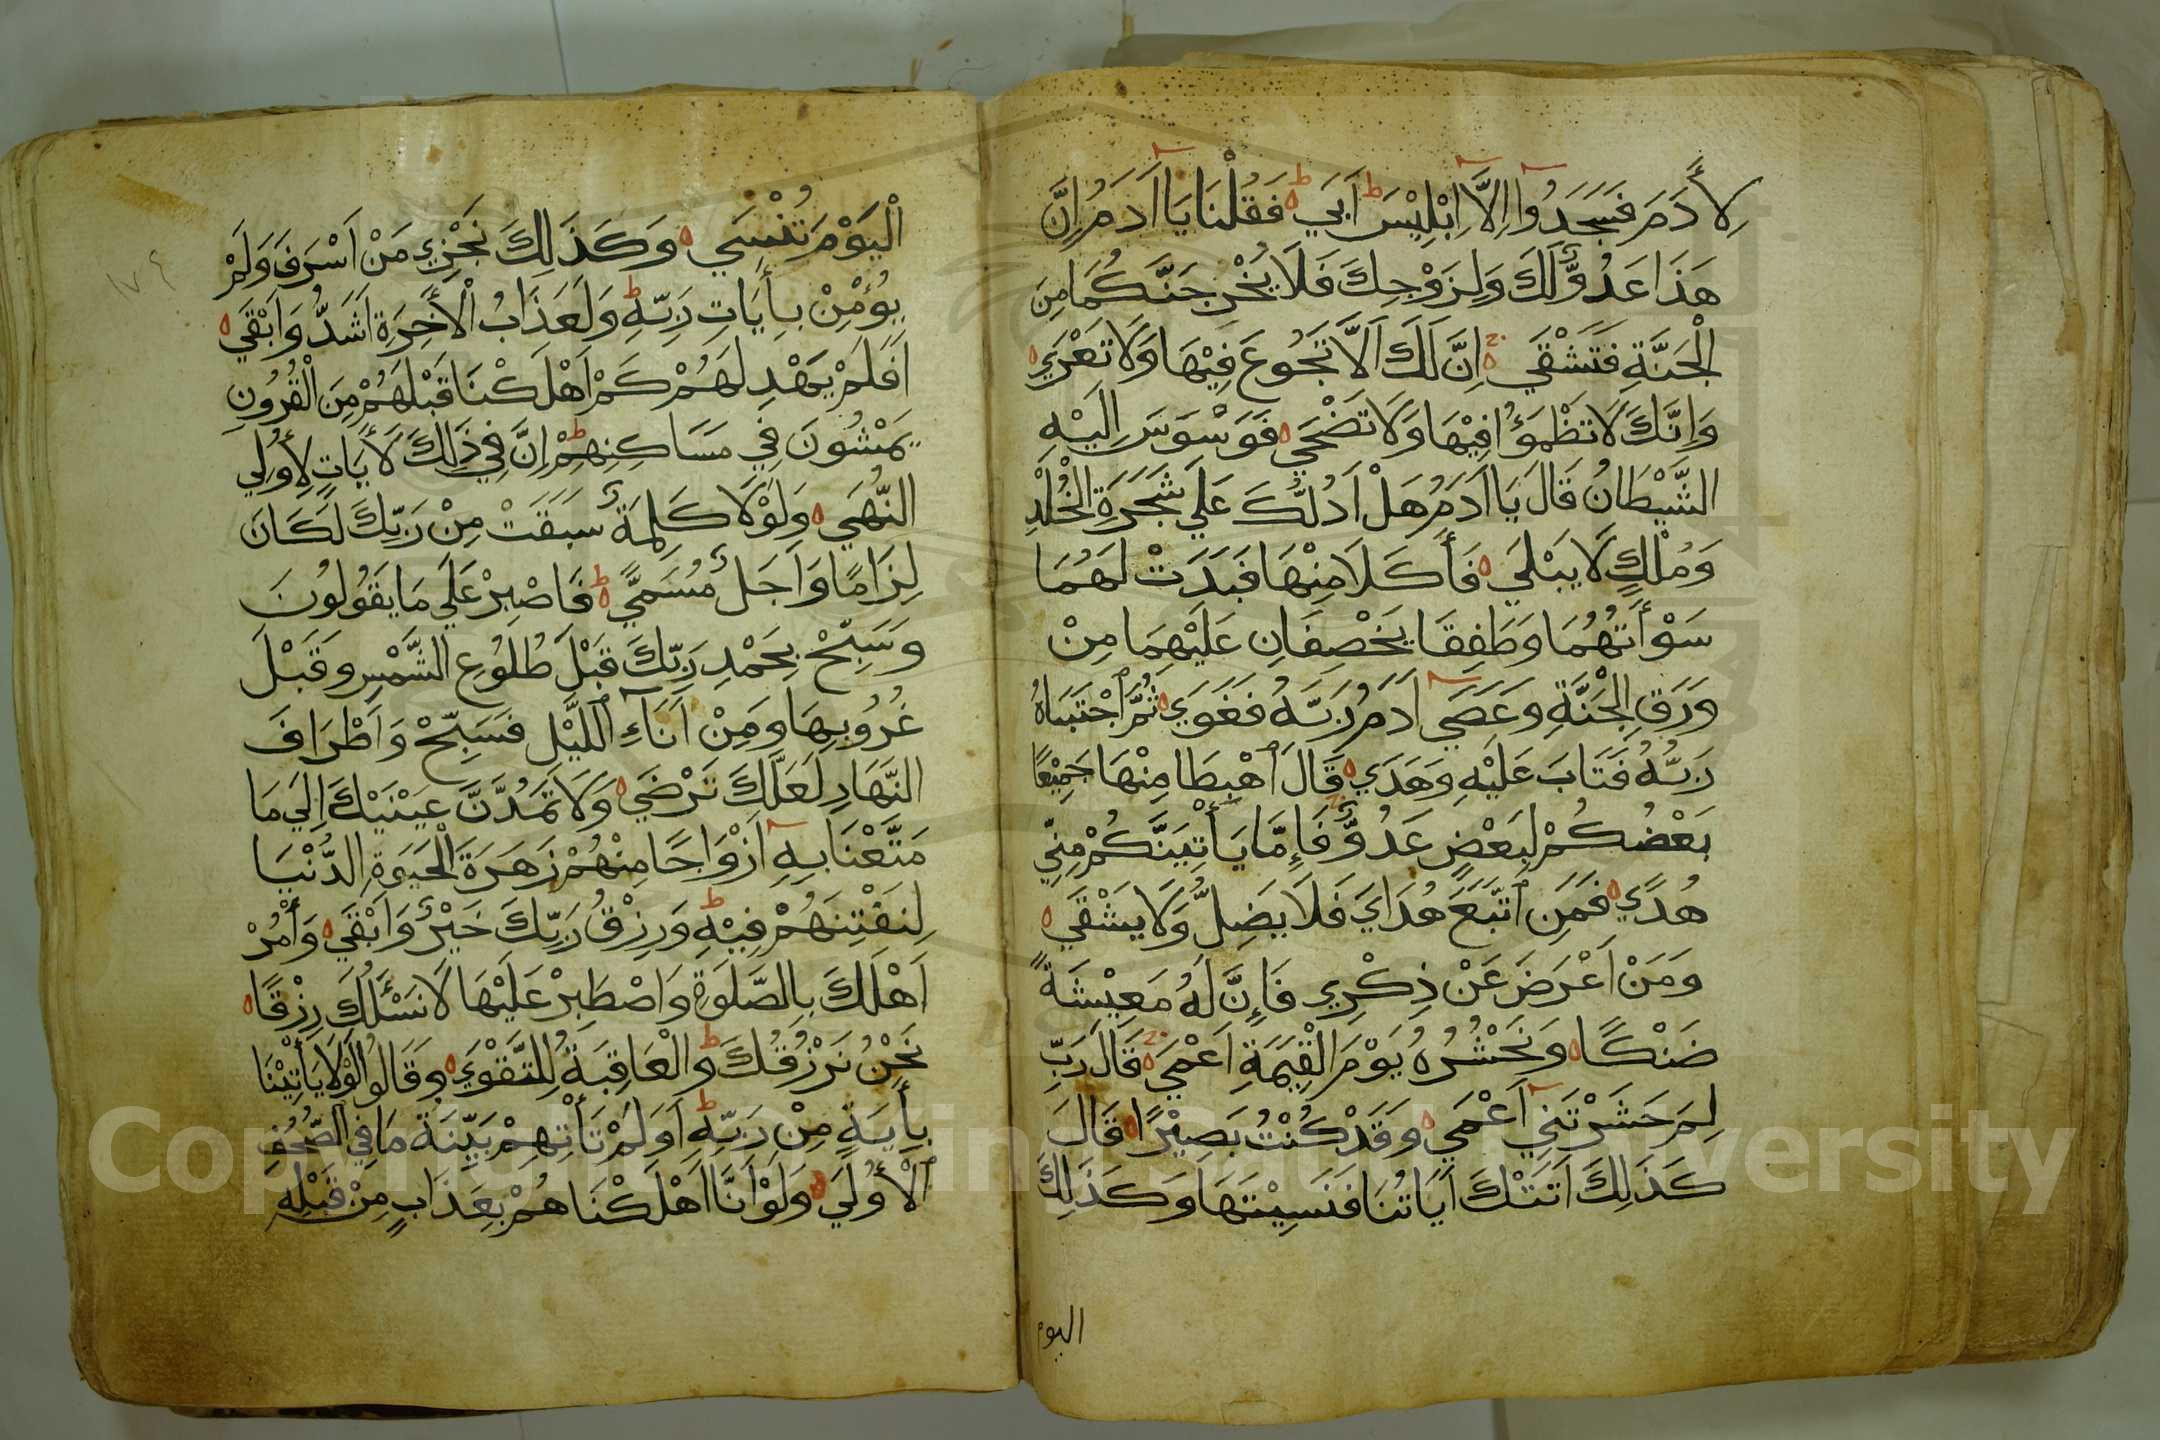 لِأَدَمَ فَسَجَدُوا اِلَّا اِبْلِيْسَ اَبَي فَقُلْنَا يَا اَدَمُ اِنَّ
هَذَا عَدُوٌّ لَكَ وَلِزَوْجِكَ فَلَا يُخْرِجَنَّكُمَا مِنَ
الْجَنَّةِ فَتَشْقَي اِنَّ لَكَ اَلَّا تَجُوعَ فِيْهَا وَلَا تَعْرَي
وَاِنَّكَ لَا تَظْمَؤُا فِيْهَا وَلَا تَضْحَي فَوَسْوَسَ اِلَيْهِ
الشَّيْطَانُ قَالَ يَا اَدَمُ هَلْ اَدُلُّكَ عَلَي شَجَرَةِ الْخُلْدِ
وَمُلْكٍ لَا يَبْلَي فَأَكَلَا مِنْهَا فَبَدَتْ لَهُمَا
سَوْأَتُهُمَا وَطَفِقَا يَخْصِفَانِ عَلَيْهِمَا مِنْ
وَرَقِ الْجَنَّةِ وَعَصَي اَدَمُ رَبَّهُ فَغَوَي ثُمَّ ٱجْتَبَاهُ
رَبُّهُ فَتَابَ عَلَيْهِ وَهَدَي قَالَ ٱهْبِطَا مِنْهَا جَمِيْعًا
بَعْضُكُمْ لِبَعْضٍ عَدُوٌّ فَإِمَّا يَأْتِيَنَّكُمْ مِنِّي
هُدًي فَمَنِ ٱتَّبَعَ هُدَايَ فَلَا يَضِلُّ وَلَا يَشْقَي
وَمَنْ اَعْرَضَ عَنْ ذِكْرِي فَإِنَّ لَهُ مَعِيْشَةً
ضَنْكًا وَنَحْشُرُهُ يَوْمَ الْقِيَمَةِ اَعْمَي قَالَ رَبِّ
لِمَ حَشَرْتَنِي اَعْمَي وَقَدْ كُنْتُ بَصِيْرًا قَالَ
كَذَلِكَ اَتَتْكَ اَيَاتُنَا فَنَسِيْتَهَا وَكَذَلِكَ
اليوم
الْيَوْمَ تُنْسَي وَكَذَلِكَ نَجْزِي مَنْ اَسْرَفَ وَلَمْ
يُؤْمِنْ بِأَيَاتِ رَبِّهِ وَلَعَذَابُ الْأَخِرَةِ اَشَدُّ وَاَبْقَي
اَفَلَمْ يَهْدِ لَهُمْ كَمْ اَهْلَكْنَا قَبْلَهُمْ مِنَ الْقُرُونِ
يَمْشُونَ فِي مَسَاكِنِهِمْ اِنَّ فِي ذَلِكَ لَأَيَاتٍ لِأُولِي
النُّهَي وَلَوْلَا كَلِمَةٌ سَبَقَتْ مِنْ رَبِّكَ لَكَانَ
لِزَامًا وَاَجَلٌ مُسَمًّي فَاصْبِرْ عَلَي مَا يَقُولُونَ
وَسَبِّحْ بِحَمْدِ رَبِّكَ قَبْلَ طُلُوعِ الشَّمْسِ وَقَبْلَ
غُرُوبِهَا وَمِنْ اَنَآءِ ٱللَّيْلِ فَسَبِّحْ وَاَطْرَافَ
النَّهَارِ لَعَلَّكَ تَرْضَي وَلَا تَمُدَّنَّ عَيْنَيْكَ اِلَي مَا
مَتَّعْنَا بِهِ اَزْوَاجًا مِنْهُمْ زَهَرَةَ الْحَيَوةِ الدُّنْيَا
لِنَفْتِنَهُمْ فِيْهِ وَرِزْقُ رَبِّكَ خَيْرٌ وَاَبْقَي وَأْمُرْ
اَهْلَكَ بِالصَّلَوةِ وَاصْطَبِرْ عَلَيْهَا لَا نَسْـَٔلُكَ رِزْقًا
نَحْنُ نَرْزُقُكَ وَالْعَاقِبَةُ لِلتَّقْوَي وَقَالُوا لَوْلَا يَأْتِيْنَا
بِأَيَةٍ مِنْ رَبِّهِ اَوَلَمْ تَأْتِهِمْ بَيِّنَةُ مَا فِي الصُّحُفِ
ٱلْأُولَي وَلَوْ اَنَّا اَهْلَكْنَاهُمْ بِعَذَابٍ مِنْ قَبْلِهِ
١٧٤